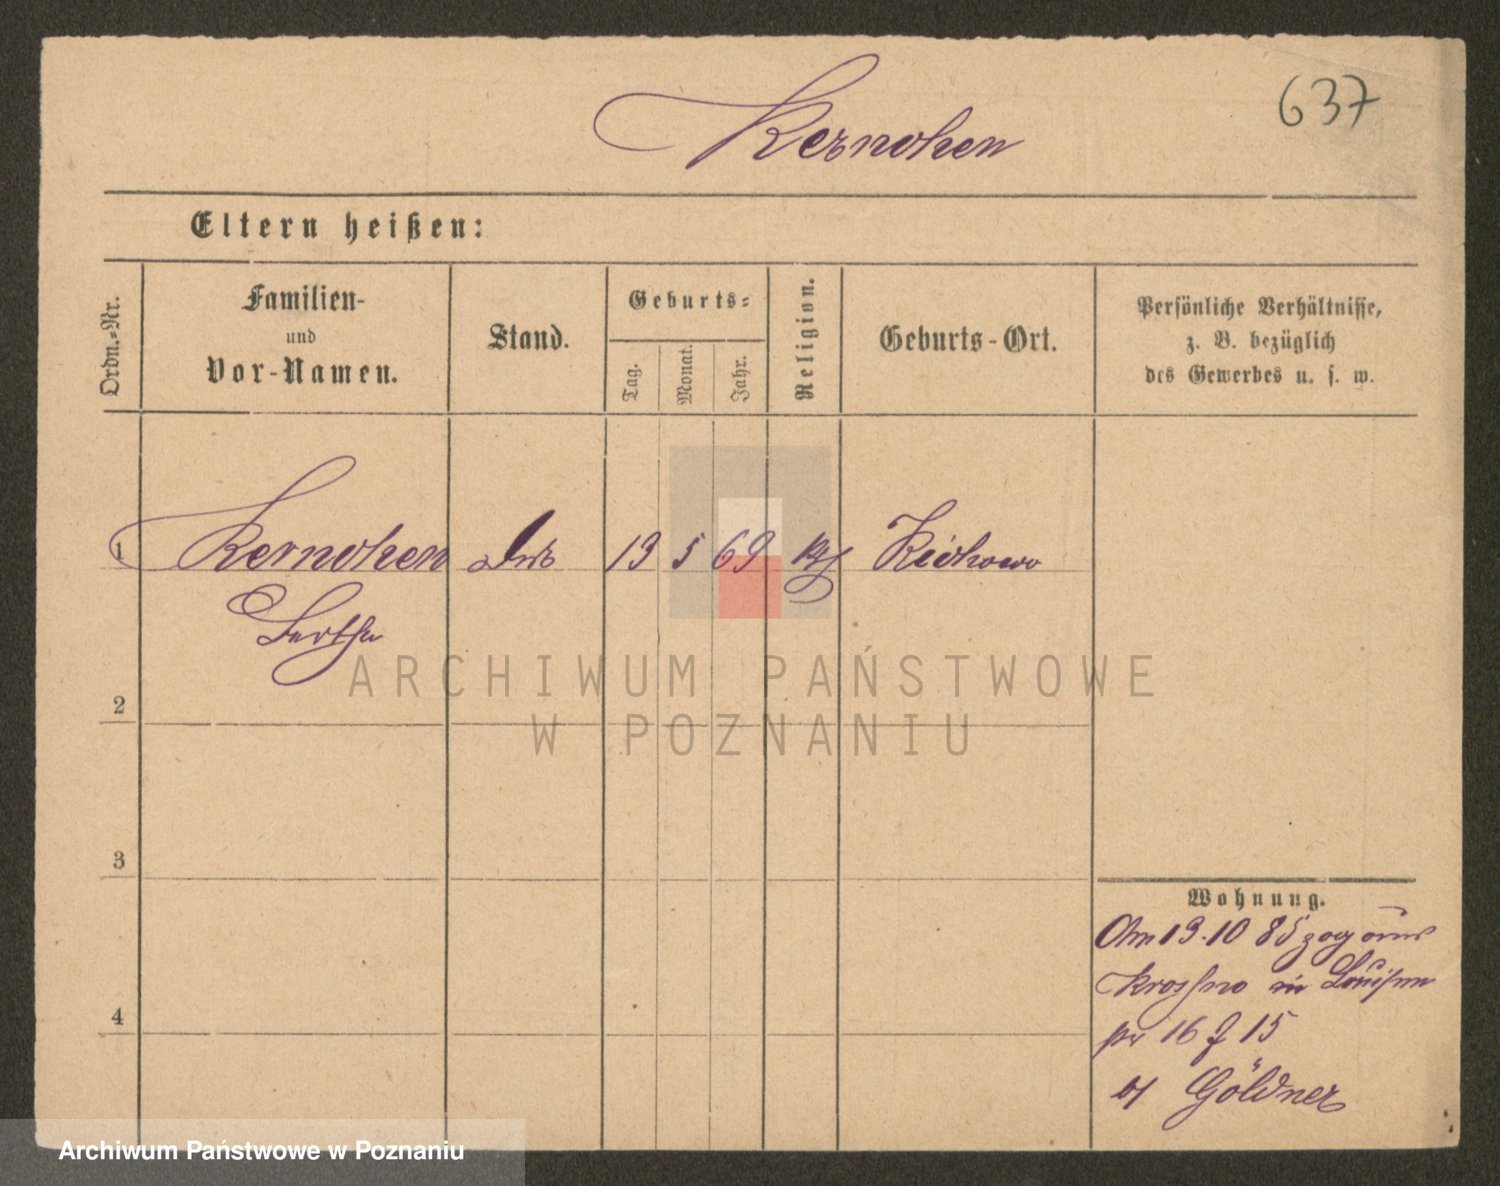 637
Kernchen
Eltern heißen:
Ordn.-Nr.
Familien-
und
Vor-Namen.
Stand.
Geburts-
Tag.
Monat.
Jahr.
Religion.
Geburts-Ort.
Persönliche Verhältnisse,
z. B. bezüglich
des Gewerbes u. s. w.
1 Kernchen 19 5 69 Kichowo
Bertha
2
3
4
Wohnung.
Am 19.10 85 zog aus
Krossno in Louisen
16 15
Göldner
ARCHIWUM PAŃSTWOWE
W POZNANIU
Archiwum Państwowe w Poznaniu